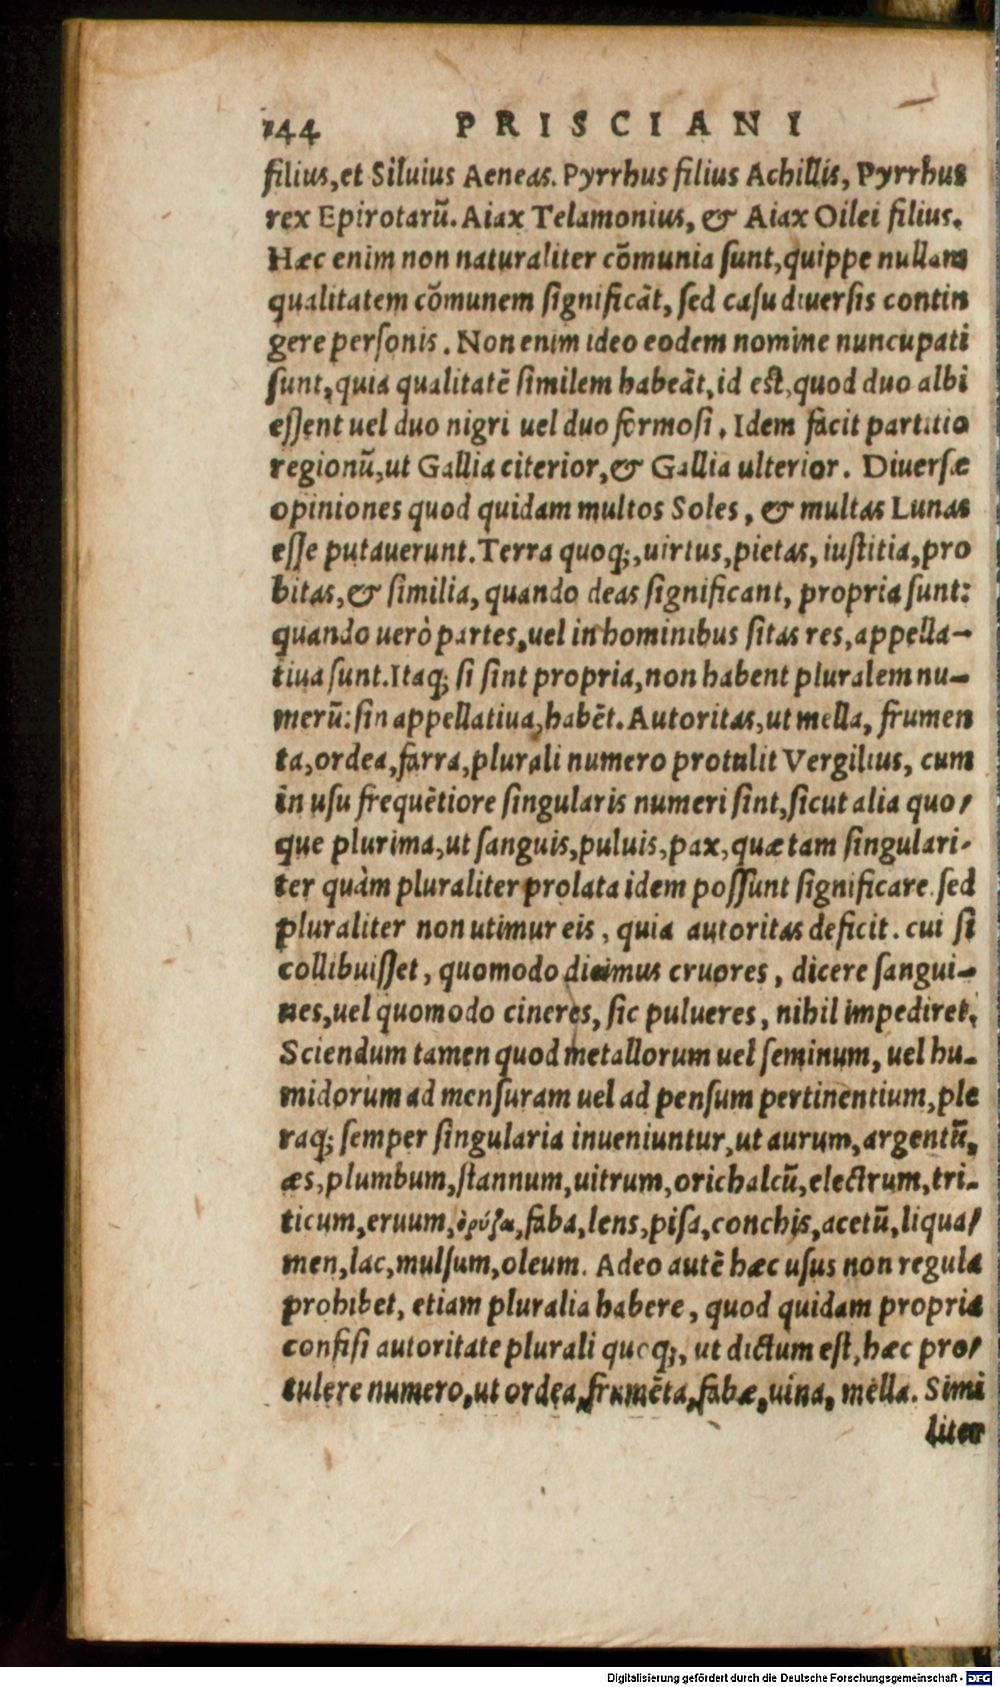 144 PRISCIANI
filius, et Siluius Aeneas. Pyrrhus filius Achillis, Pyrrhus
rex Epirotarũ. Aiax Telamonius, & Aiax Oilei filius.
Hæc enim non naturaliter cõmunia ſunt, quippe nullam
qualitatem cõmunem ſignificãt, ſed caſu diuerſis contin
gere perſonis. Non enim ideo eodem nomine nuncupati
ſunt, quia qualitatẽ ſimilem habeãt, id eſt, quod duo albi
eſſent uel duo nigri uel duo formoſi. Idem facit partitio
regionũ, ut Gallia citerior, & Gallia ulterior. Diuerſæ
opiniones quod quidam multos Soles, & multas Lunas
eſſe putauerunt. Terra quoq;, uirtus, pietas, iuſtitia, pro
bitas, & ſimilia, quando deas ſignificant, propria ſunt:
quando uerò partes, uel in hominibus ſitas res, appella-
tiua ſunt. Itaq; ſi ſint propria, non habent pluralem nu-
merũ: ſin appellatiua, habẽt. Autoritas, ut mella, frumen
ta, ordea, farra, plurali numero protulit Vergilius, cum
in uſu frequẽtiore ſingularis numeri ſint, ſicut alia quo/
que plurima, ut ſanguis, puluis, pax, quæ tam ſingulari-
ter quàm pluraliter prolata idem poſſunt ſignificare. ſed
pluraliter non utimur eis, quia autoritas deficit. cui ſi
collibuiſſet, quomodo dicimus cruores, dicere ſangui-
nes, uel quomodo cineres, ſic pulueres, nihil impediret.
Sciendum tamen quod metallorum uel ſeminum, uel hu-
midorum ad menſuram uel ad penſum pertinentium, ple
raq; ſemper ſingularia inueniuntur, ut aurum, argentũ,
æs, plumbum, ſtannum, uitrum, orichalcũ, electrum, tri-
ticum, eruum, ὀρύζα, faba, lens, piſa, conchis, acetũ, liqua/
men, lac, mulſum, oleum. Adeo autẽ hæc uſus non regula
prohibet, etiam pluralia habere, quod quidam propria
confiſi autoritate plurali quoq;, ut dictum eſt, hæc pro/
tulere numero, ut ordea, frumẽta, fabæ, uina, mella. Simi
liter
Digitalisierung gefördert durch die Deutsche Forschungsgemeinschaft - DFG